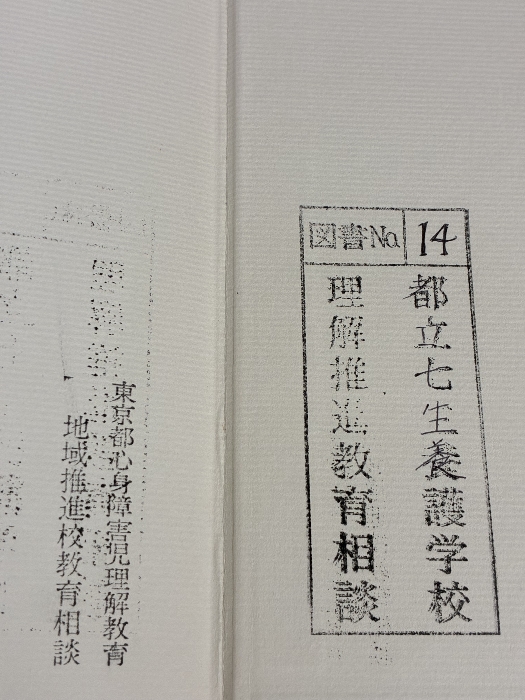 図書No. 14
都立七生養護学校
理解推進教育相談
東京都心身障害児理解教育
地域推進校教育相談